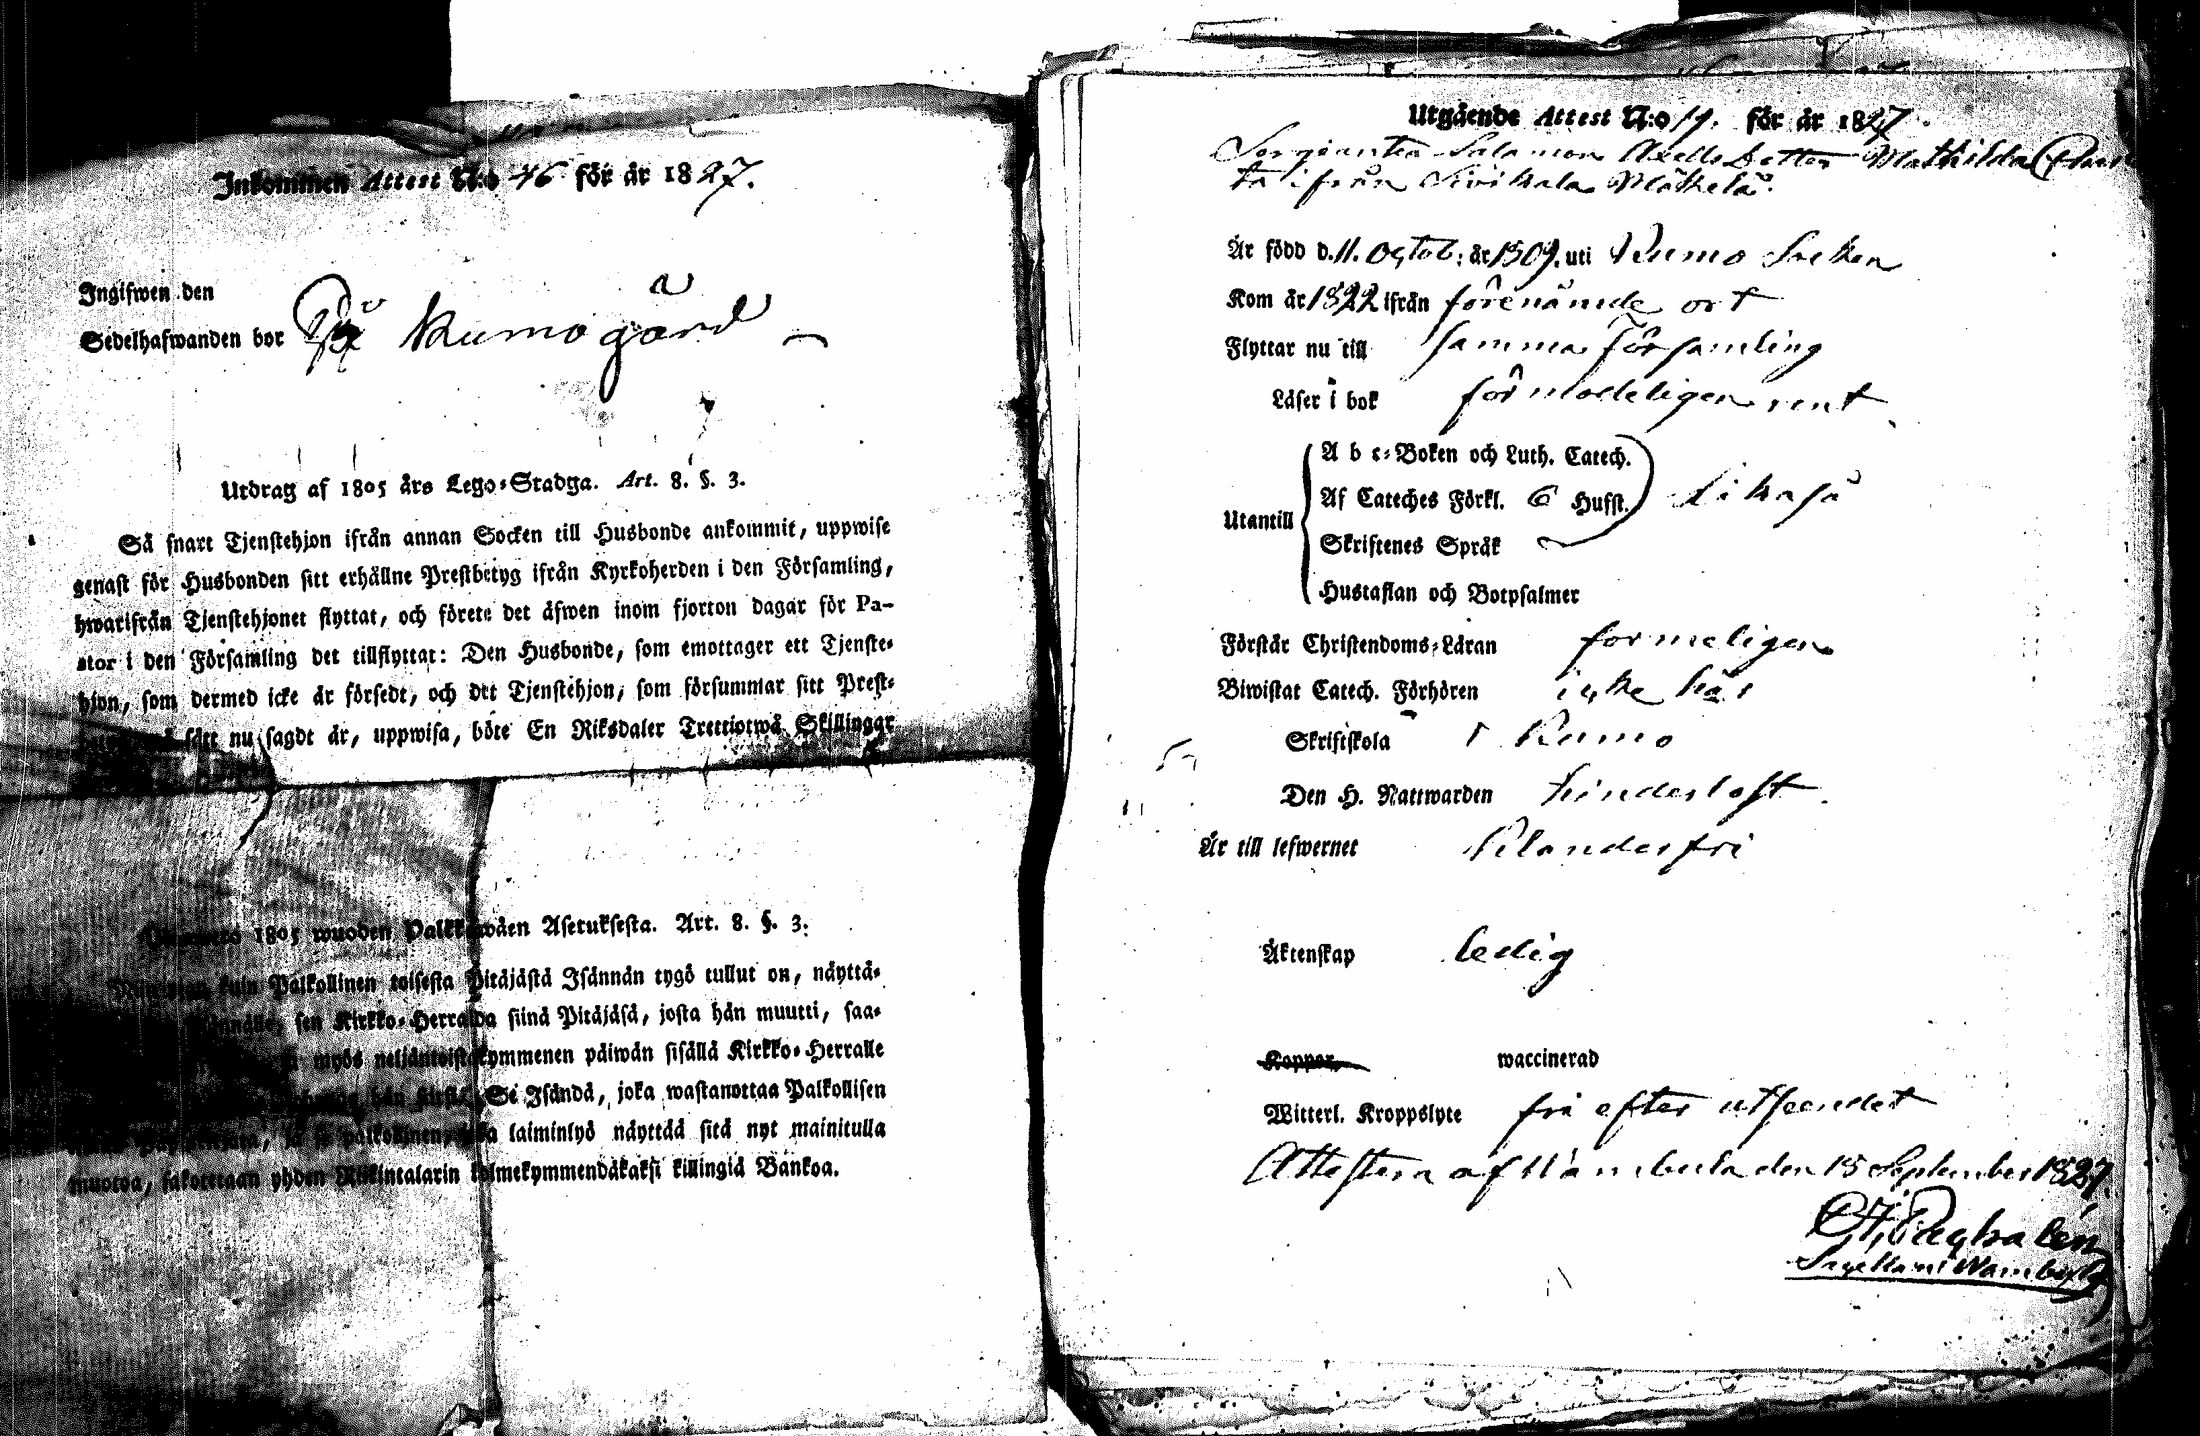 Inkommen Attest N:o 46 för år 1827.
Ingifwen den
Sedelhafwanden bor På Kumogård
Utdrag af 1805 års Lego-Stadga. Art. 8. §. 3.
Så snart Tjenstehjon ifrån annan Socken till Husbonde ankommit, uppwise
genast för Husbonden sitt erhållne Prestbetyg ifrån Kyrkoherden i den Församling,
hwarifrån Tjenstehjonet flyttat, och förete det äfwen inom fjorton dagar för Pa-
stor i den Församling det tillflyttat: Den Husbonde, som emottager ett Tjenste-
hjon, som dermed icke är försedt, och det Tjenstehjon, som försummar sitt Prest-
sätt nu sagdt är, uppwisa, böte En Riksdaler Trettiotwå Skillingar
1805 wuoden Palkkawäen Asetuksesta. Art. 8. §. 3.
kuin Palkollinen toisesta Pitäjästä Isännän tygö tullut on, näyttä-
sen Kirkko-Herralda siinä Pitäjäsä, josta hän muutti, saa-
myös neljäntoistakymmenen päiwän sisällä Kirkko-Herralle
Se Isändä, joka wastanottaa Palkollisen
ja se palkollinen, joka laiminlyö näyttää sitä nyt mainitulla
muotoa, sakotetaan yhden Riikintalarin kolmekymmendäkaksi killingiä Bankoa.
Utgående Attest N:o 19. för år 1827.
Sergianten Salamon Axells Dotter Mathilda
ta ifrån Sivikala Mäkelä.
Är född d. 11. Octob: år 1809. uti Kumo Socken
Kom år 1822 ifrån förenämde ort
Flyttar nu till samma församling
Läser i bok förmodeligen rent
A b c-Boken och Luth. Catech.
Af Cateches Förkl. 6 Hufst. Likaså
Utantill
Skriftenes Språk
Hustaflan och Botpsalmer
Förstår Christendoms-Läran formeligen
Biwistat Catech. Förhören icke här
Skriftskola i Kumo
Den H. Nattwarden hinderlöst
Är till lefwernet Klanderfri
Äktenskap ledig
Koppor waccinerad
Witterl. Kroppslyte fri efter utseendet
Attestera af Hambula den 15 September 1827.